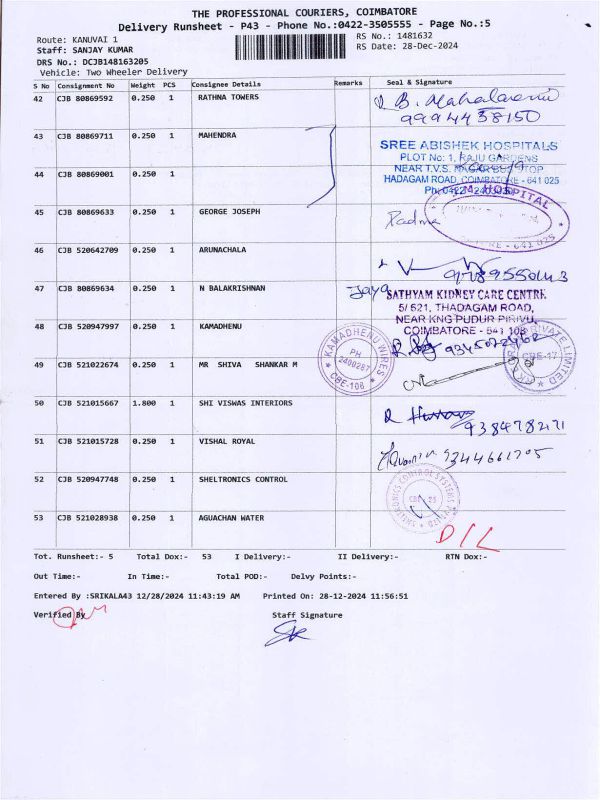 THE PROFESSIONAL COURIERS, COIMBATORE
Delivery Runsheet - P43 - Phone No.:0422-3505555 - Page No.:5
Route: KANUVAI 1
RS No.: 1481632
Staff: SANJAY KUMAR
RS Date: 28-Dec-2024
DRS No.: DCJB148163205
Vehicle: Two Wheeler Delivery
S No Consignment No Weight PCS Consignee Details Remarks Seal & Signature
42 CJB 80869592 0.250 1 RATHNA TOWERS
9994438150
43 CJB 80869711 0.250 1 MAHENDRA
SREE ABISHEK HOSPITALS
PLOT No: 1, RAJU GARDENS
NEAR T.V.S. NAGAR BUS STOP
44 CJB 80869001 0.250 1
HADAGAM ROAD, COIMBATORE - 641 025
HOSPITAL
45 CJB 80869633 0.250 1 GEORGE JOSEPH
Padma
- 641 025
46 CJB 520642709 0.250 1 ARUNACHALA
47 CJB 80869634 0.250 1 N BALAKRISHNAN
Jaya
SATHYAM KIDNEY CARE CENTRE
5/ 621, THADAGAM ROAD,
NEAR KNG PUDUR PIRIVU,
COIMBATORE - 641 108
48 CJB 520947997 0.250 1 KAMADHENU
KAMADHENU WIRES
PH
2400287
CBE-108
9345072462
PRIVATE LIMITED
CBE-17
49 CJB 521022674 0.250 1 MR SHIVA SHANKAR M
50 CJB 521015667 1.800 1 SHI VISWAS INTERIORS
51 CJB 521015728 0.250 1 VISHAL ROYAL
52 CJB 520947748 0.250 1 SHELTRONICS CONTROL
SHELTRONICS CONTROL SYSTEMS
53 CJB 521028938 0.250 1 AGUACHAN WATER
D/L
Tot. Runsheet:- 5 Total Dox:- 53 I Delivery:- II Delivery:- RTN Dox:-
Out Time:- In Time:- Total POD:- Delvy Points:-
Entered By :SRIKALA43 12/28/2024 11:43:19 AM Printed On: 28-12-2024 11:56:51
Verified By
Staff Signature